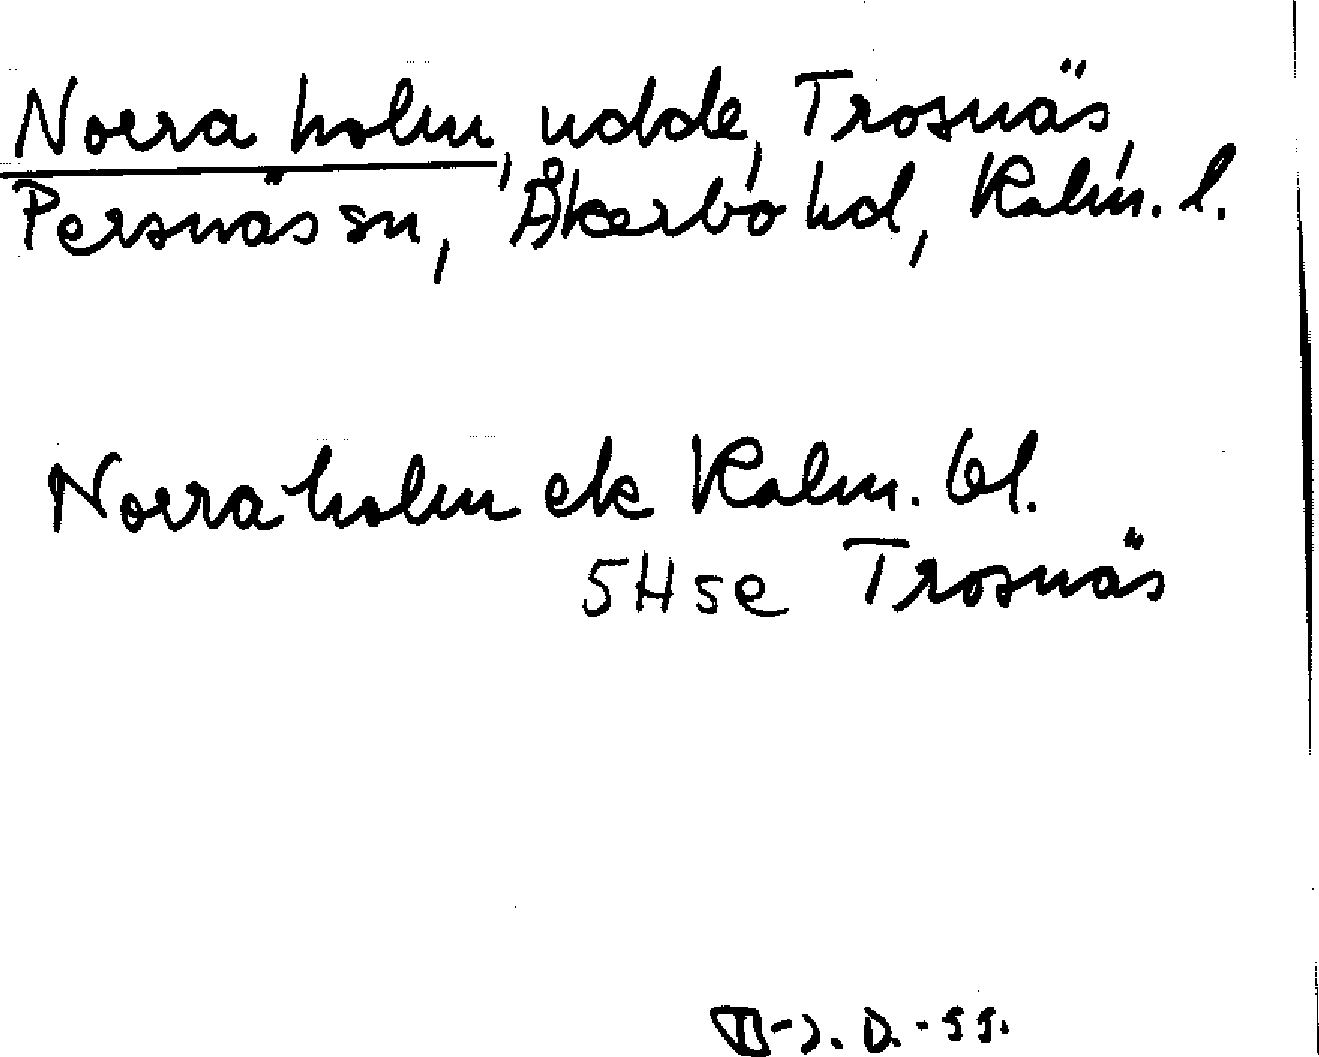 Norra holm, udde, Trosnäs,
Persnäs sn, Åkerbo hd, Kalm. l.
Norra holm ek Kalm. öl.
5H5e Trosnäs